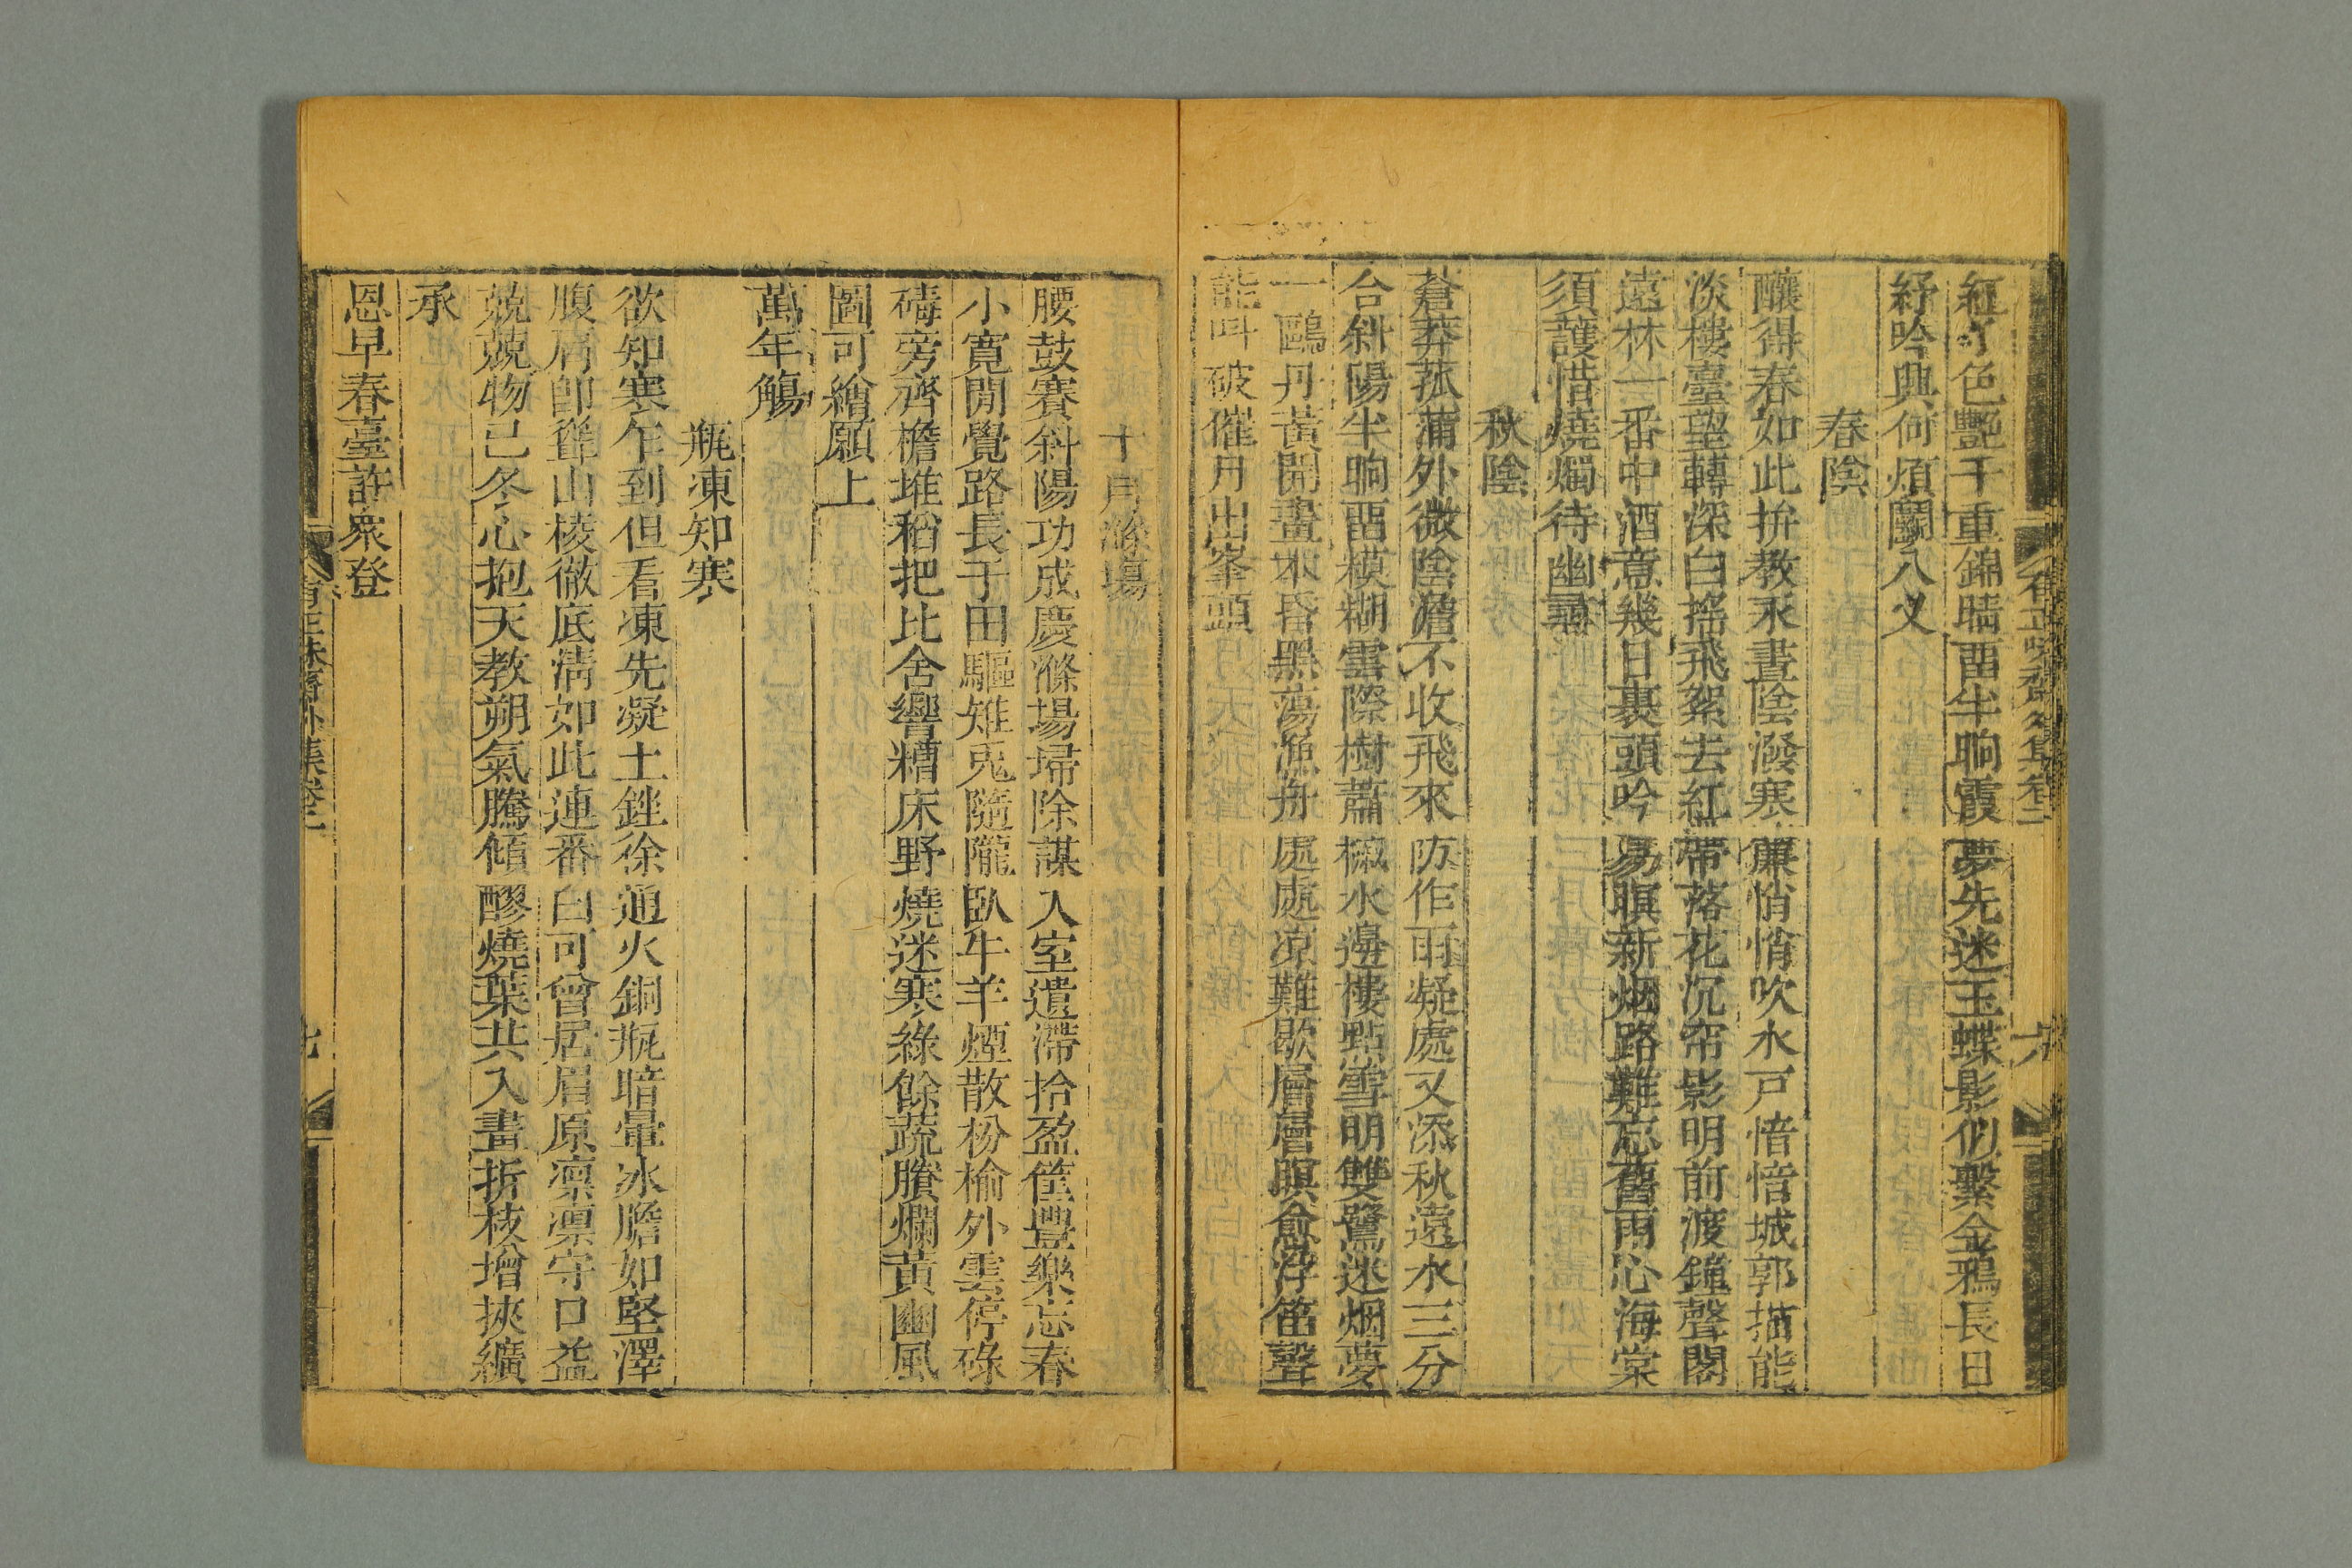 有正味齋外集卷二 六
紅了色艷千重錦晴酣半晌霞夢先迷玉蝶影似繫金鴉長日
紓吟興何煩鬭八叉
春陰
釀得春如此拚教永晝陰潑寒簾悄悄吹水戸愔愔城郭描能
淡樓臺望轉深白搖飛絮去紅帶落花沉帘影明前渡鐘聲閣
遠林一番中酒意幾日裹頭吟易暝新烟路難忘舊雨心海棠
須護惜燒燭待幽尋
秋陰
蒼莽菰蒲外微陰澹不收飛來昉作雨疑處又添秋遠水三分
合斜陽半晌酉模糊雲際樹蕭槭水邊樓點雪明雙鷺迷烟夢
一鷗丹黃開畫本昏黑蕩漁舟處處凉難歇層層暝愈浮笛聲
能呌破催月出峯頭
十月滌塲
腰鼓賽斜陽功成慶滌場埽除謀入室遺滯拾盈筐豐樂忘春
小寬閒覺路長于田驅雉兎隨隴臥牛羊煙散枌榆外雲停碌
碡旁齊檐堆稻把比舍響糟床野燒迷寒綠餘蔬賸爛黃豳風
圖可繪願上
萬年觴
瓶凍知寒
欲知寒乍到但看凍先凝土銼徐通火銅瓶暗暈冰膽如堅澤
腹屑卽聳山棱徹底淸如此連番白可曾居眉原凛凛守口益
兢兢物已冬心抱天教朔氣騰傾醪燒葉共入畫折枝增挾纊
承
恩早春臺許衆登
有正味齋外集卷二 七